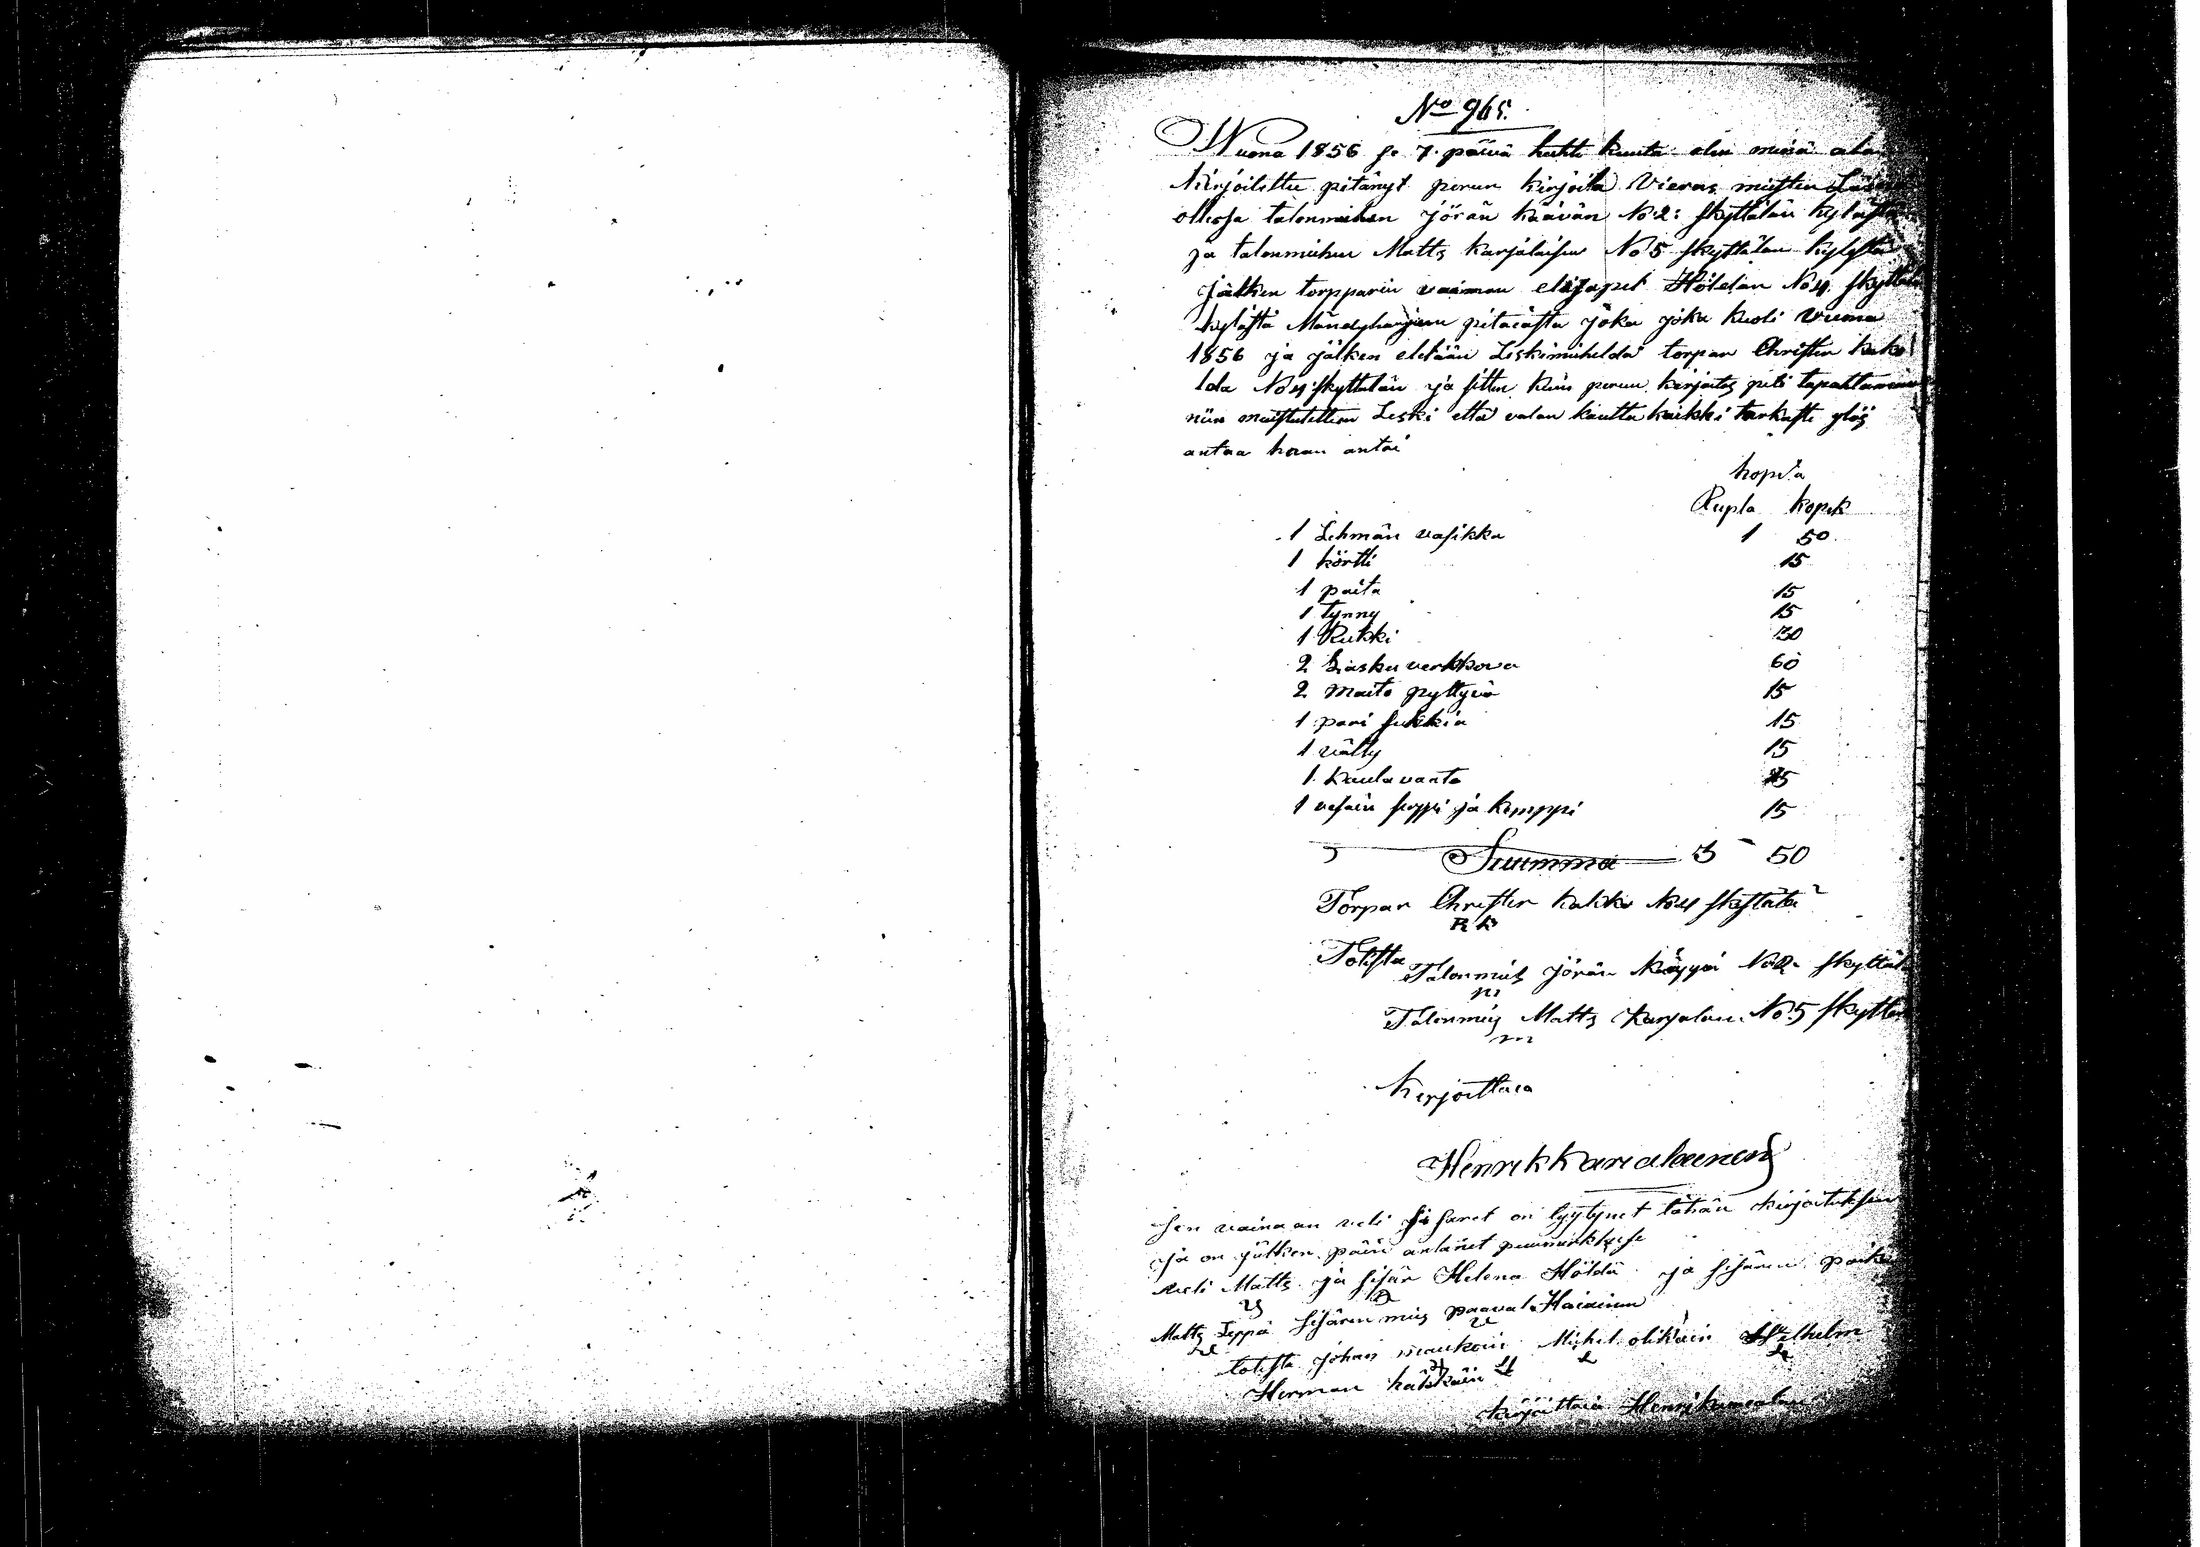 No 965.
Wuona 1856 se 7. päivä huhti kuuta olen minä ala
kirjoitettu pitänyt perun kirjoita Vieras miesten Läsnä
ollessa talonmiehen Jörän käävän No 2: skyttälän kylästä
ja talonmiehen Matts karjalaisen No 5 skyttälän kylästä
jälken torpparin vaimon elisapet Höldän No 4 skyttälä
kylästä Mändyharjun pitaiästa joka joka kuoli vuona
1856 ja jälken elävän Leskimiehelda torpar Christer kako
lda No 4 skyttälän ja sitten kuin perun kirjoitus piti tapahtaman
niin muistutettiin Leski että valan kautta kaikki tarkasti ylös
antaa hään antoi
hopia
Rupla kopek
1 Lehmän vasikka 1 50
1 körtti 15
1 paita 15
1 tynny 15
1 Rukki 30
2 Lasku verkkova 60
2 maito pyttyiä 15
1 pari sukkia 15
1 välty 15
1 kaula vaate 15
1 vesain soppi ja kimppi 15
Suumma 3 50
Torpar Christer kakko No 4 skyttälä
R k
Totista
Talonmies Jörän käyyä No 2 skyttäl
Talonmies Matts karjalain No 5 skyttä
Kirjoittaia
Henrik karialainen
sen vainaan veli sisaret on tyytynet tähän kirjoituksen
ja on jälken päin antanet puumerkkinse
veli Matts ja sisär Helena Höldä ja sisären poika
Matts Leppä sisären mies paavali Haiainen
totista Johan maukoin Michel olikain Wilhelm
Herman häkkäin
kirjoittaia Henrik karialain